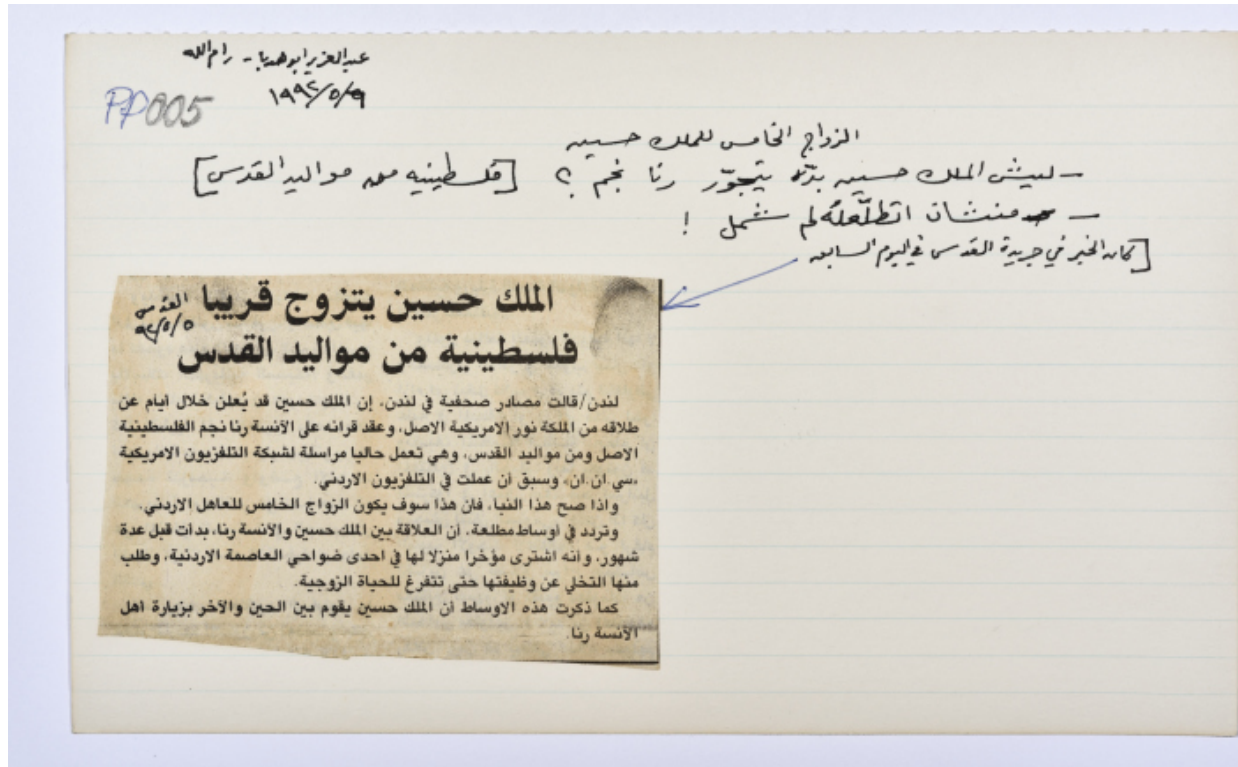 عبدالعزيز ابوهدبا - رام الله
PP005
١٩٩٢/٥/٩
الزواج الخامس للملك حسين
- لييش الملك حسين بدّه يتجوّز رنا نجم ؟ [فلسطينيه من مواليد القدس]
- منشان اتطلّعلُه لم شمل !
[كان الخبر في جريدة القدس في اليوم السابق
الملك حسين يتزوج قريبا
القدس
٩٢/٥/٥
فلسطينية من مواليد القدس
لندن/قالت مصادر صحفية في لندن، إن الملك حسين قد يُعلن خلال أيام عن
طلاقه من الملكة نور الامريكية الاصل، وعقد قرانه على الآنسة رنا نجم الفلسطينية
الاصل ومن مواليد القدس، وهي تعمل حاليا مراسلة لشبكة التلفزيون الامريكية
«سي.ان.ان» وسبق أن عملت في التلفزيون الاردني.
واذا صح هذا النبا، فان هذا سوف يكون الزواج الخامس للعاهل الاردني.
وتردد في أوساط مطلعة، أن العلاقة بين الملك حسين والآنسة رنا، بدأت قبل عدة
شهور، وأنه اشترى مؤخرا منزلا لها في احدى ضواحي العاصمة الاردنية، وطلب
منها التخلي عن وظيفتها حتى تتفرغ للحياة الزوجية.
كما ذكرت هذه الاوساط أن الملك حسين يقوم بين الحين والآخر بزيارة اهل
الآنسة رنا.